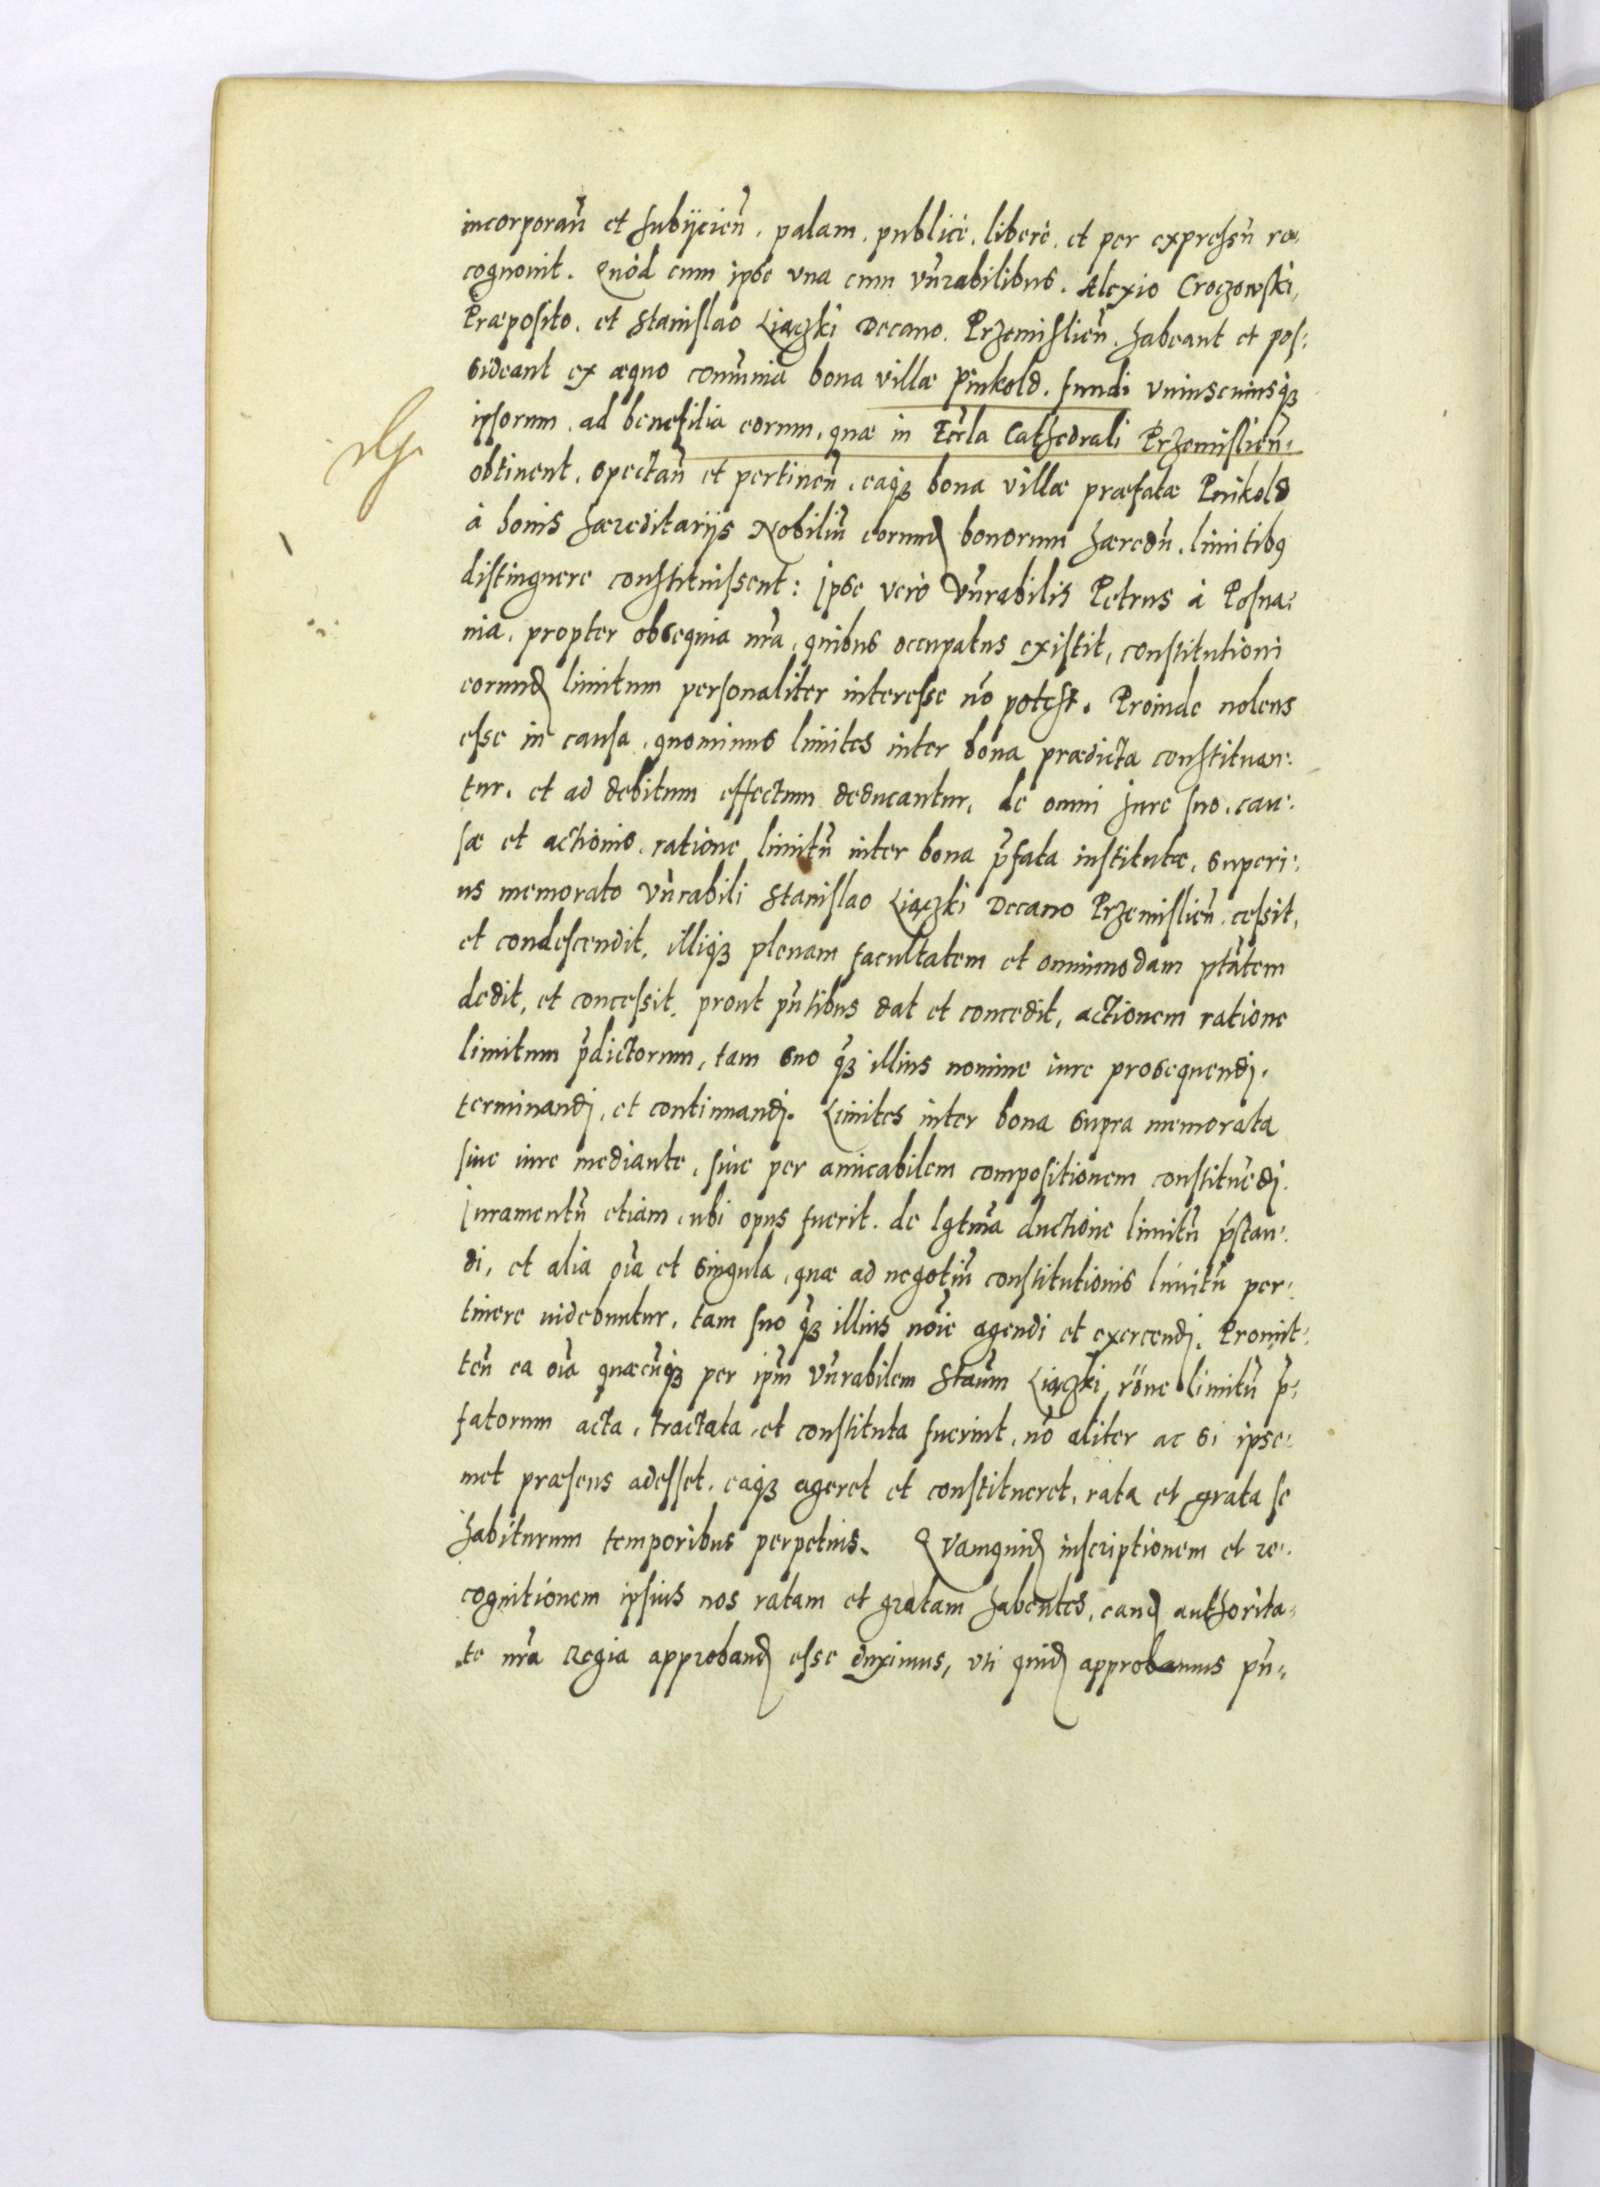 incorporan̄ et subijcien̄. palam. publicè. liberè. et per expressū re-
cognouit. Quòd cum ipse vna cum vn̄rabilibus. Alexio Croczowski,
Præposito. et Stanislao Liączki Decano. Przemislien̄. habeant et pos-
sideant ex æquo com̄unia bona villæ Pinkold. fundi vniuscuiusq3
ipsorum. ad benefitia eorum, quæ in Eccl̄a Cathedrali Przemislien̄.
obtinent. spectan̄ et pertinen̄. eaq3 bona villæ præfatæ Pnikold
à bonis hæreditarijs Nobiliū eorund bonorum hæredū. limitibus
distinguere constituissent: Ipse verò Vn̄rabilis Petrus à Posna-
nia. propter obsequia nr̄a, quibus occupatus existit, constitutioni
eorund limitum personaliter interesse nō potest. Proinde nolens
esse in causa, quominus limites inter bona prædicta constituan-
tur. et ad debitum effectum deducantur, de omni Jure suo. cau-
sæ et actionis. ratione limitū inter bona p̄fata institutæ. superi-
us memorato Vn̄rabili Stanislao Liączki Decano Przemislien̄. cessit,
et condescendit. illiq3 plenam facultatem et omnimodam ptātem
dedit, et concessit. prout pn̄tibus dat et concedit, actionem ratione
limitum p̄dictorum, tam suo q̄3 illius nomine iure prosequendi.
terminandi, et continuandi. Limites inter bona supra memorata
siue iure mediante, siue per amicabilem compositionem constituēdi.
Juramentū etiam, ubi opus fuerit. de lgtm̄a ductione limitū p̄stan-
di, et alia oīa et singula, quæ ad negotiū constitutionis limitū per-
tinere uidebuntur. tam suo q̄3 illius noīe agendi et exercendi. Promit-
ten̄ ea oīa quæcūq3 per ipm̄ Vn̄rabilem Stan̄m Liączki rōne limitū p̄-
fatorum acta, tractata, et constituta fuerint, nō aliter ac si ipse-
met præsens adesset. eaq3 ageret et constitueret, rata et grata se
habiturum temporibus perpetuis. Quamquid inscriptionem et re-
cognitionem ipsius nos ratam et gratam habentes, eand authorita-
te nr̄a Regia approband esse duximus, vti quid approbamus pn̄-